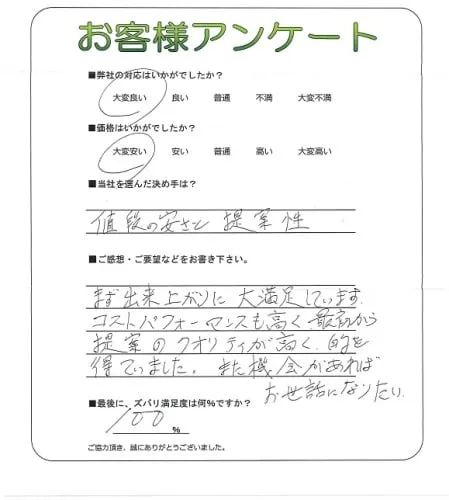 お客様アンケート
■弊社の対応はいかがでしたか？
大変良い 良い 普通 不満 大変不満
■価格はいかがでしたか？
大変安い 安い 普通 高い 大変高い
■当社を選んだ決め手は？
値段の安さと 提案性
■ご感想・ご要望などをお書き下さい。
まず出来上がりに 大満足しています。
コストパフォーマンスも高く 最初から
提案のクオリティが高く、的を
得ていました。また機会があれば
お世話になりたい
■最後に、ズバリ満足度は何%ですか？
100 %
ご協力頂き、誠にありがとうございました。